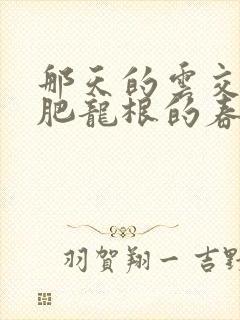 那天的雲交
肥龍根的春
羽賀翔一 吉野